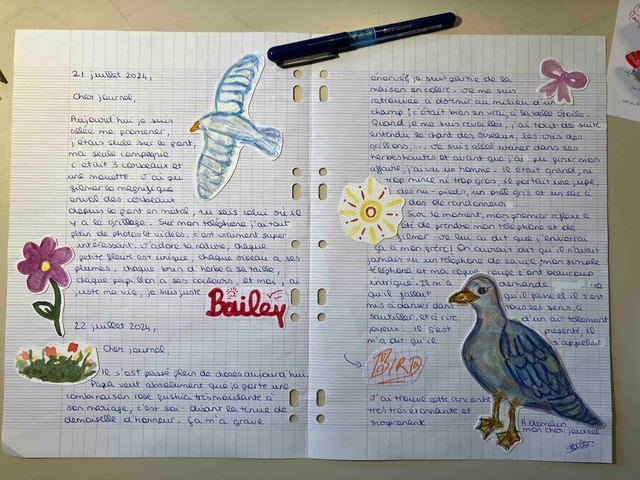 21 juillet 2024,
Cher journal,
Aujourd'hui je suis
allée me promener,
j'étais seule sur le pont,
ma seule compagnie
c'était 3 corbeaux et
une mouette. J'ai pu
filmer le magnifique
envol des corbeaux
depuis le pont en métal, tu sais celui où il
y a le grillage. Sur mon téléphone j'ai tout
plein de photos et vidéos, c'est vraiment super
intéressant. J'adore la nature, chaque
petite fleur est unique, chaque oiseau a ses
plumes, chaque brin d'herbe a sa taille,
chaque papillon a ses couleurs, et moi, j'ai
juste ma vie, je suis juste Bailey
22 juillet 2024,
Cher journal,
Il s'est passé plein de choses aujourd'hui.
Papa veut absolument que je porte une
combinaison rose fushia très moulante à
son mariage, c'est soi-disant la tenue de
demoiselle d'honneur. Ça m'a grave
énervée, je suis partie de la
maison en colère. Je me suis
retrouvée à dormir au milieu d'un
champ, c'était bien en vrai, à la belle étoile.
Quand je me suis réveillée, j'ai tout de suite
entendu le chant des oiseaux, les cris des
grillons, ... Je suis allée uriner dans les
herbes hautes et avant que j'ai pu finir mon
affaire, j'ai vu un homme. Il était grand, ni
trop mince ni trop gros, il portait une jupe,
des nu-pieds, un pull gris et un sac à
dos de randonneur.
Sur le moment, mon premier réflexe a
été de prendre mon téléphone et de
filmer. Je lui ai dit que j'enverrai
ça à mon frère! On aurait dit qu'il n'avait
jamais vu un téléphone de sa vie, mon simple
téléphone et ma coque rouge l'ont beaucoup
intrigué. Il m'a demandé
qu'il fallait qu'il fasse et il s'est
mis à danser dans tous les sens, à
sautiller, et à rire d'un air tellement
joyeux. Il s'est présenté, il
m'a dit qu'il s'appelait
BIRD
J'ai trouvé cette rencontre
très très étonnante et
surprenante.
À demain
mon cher journal